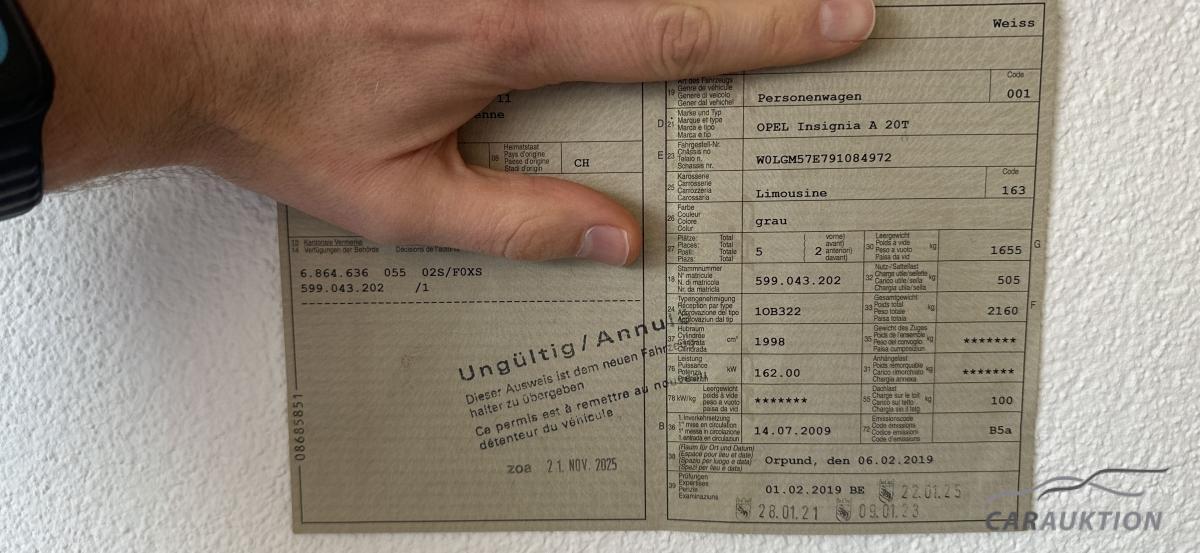 Weiss
11
enne
08 Heimatstaat
Pays d'origine
Paese d'origine
Stadi d'origin
CH
13 Kantonale Vermerke
14 Verfügungen der Behörde Décisions de l'autorité
6.864.636 055 02S/F0XS
599.043.202 /1
Ungültig / Annul
Dieser Ausweis ist dem neuen Fahrz
halter zu übergeben
Ce permis est à remettre au nouveau
détenteur du véhicule
zoa 21. NOV. 2025
08685851
19 Art des Fahrzeugs
Genre de véhicule
Genere di veicolo
Gener dal vehichel
Personenwagen
Code
001
D 21 Marke und Typ
Marque et type
Marca e tipo
Marca e tip
OPEL Insignia A 20T
E 23 Fahrgestell-Nr.
Châssis no
Telaio n.
Schassis nr.
W0LGM57E791084972
25 Karosserie
Carrosserie
Carrozzeria
Carossaria
Limousine
Code
163
26 Farbe
Couleur
Colore
Calur
grau
27 Plätze: Total
Places: Total
Posti: Totale
Plazs: Total
5
2
vorne)
avant)
anteriori)
davant)
30 Leergewicht
Poids à vide
Peso a vuoto
Paisa da vid
kg
1655
G
18 Stammnummer
N° matricule
N. di matricola
Nr. da matricla
599.043.202
32 Nutz-/Sattellast
Charge utile/sellette
Carico utile/sella
Chargia utila/sella
kg
505
24 Typengenehmigung
Réception par type
Approvazione del tipo
Approvaziun dal tip
1OB322
33 Gesamtgewicht
Poids total
Peso totale
Paisa totala
kg
2160
F
37 Hubraum
Cylindrée
Cilindrata
Cilindrada
cm³
1998
35 Gewicht des Zuges
Poids de l'ensemble
Peso del convoglio
Paisa cumposiziun
kg
*******
76 Leistung
Puissance
Potenza
kW
162.00
31 Anhängelast
Poids remorquable
Carico rimorchiato
Chargia annexa
kg
*******
78 kW/kg
Leergewicht
poids à vide
peso a vuoto
paisa da vid
*******
55 Dachlast
Charge sur le toit
Carico sul tetto
Chargia sin il tetg
kg
100
B 36 1. Inverkehrsetzung
1re mise en circulation
1a messa in circolazione
1. entrada en circulaziun
14.07.2009
72 Emissionscode
Code émissions
Codice emissioni
Code d'emissiuns
B5a
38 (Raum für Ort und Datum)
(Espace pour lieu et date)
(Spazio per luogo e data)
(Spazi per lieu e data)
Orpund, den 06.02.2019
39 Prüfungen
Expertises
Perizie
Examinaziuns
01.02.2019 BE 22.01.25
28.01.21 09.01.23
CARAUKTION